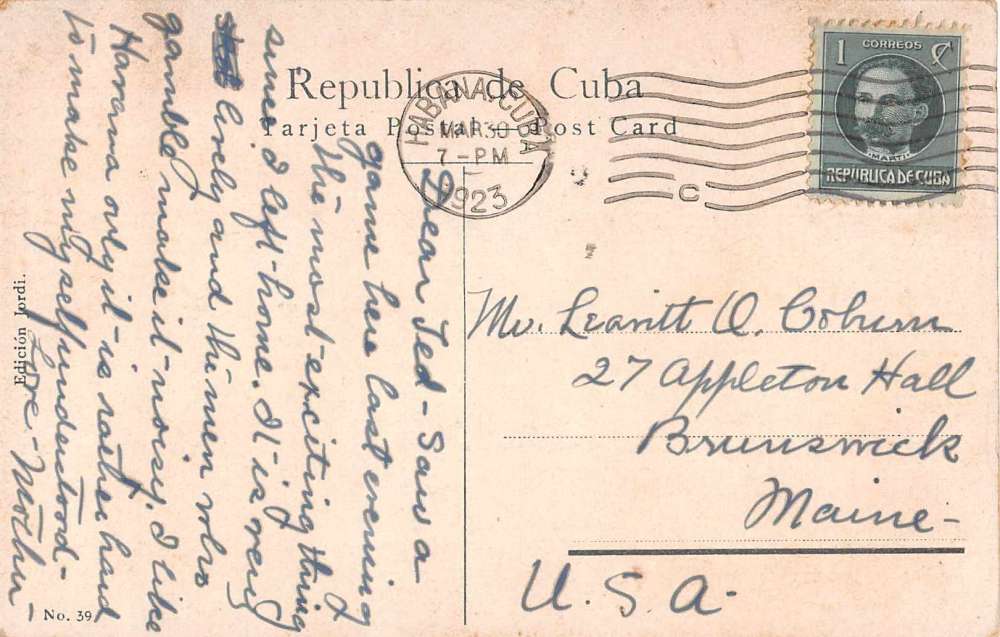 Republica de Cuba
Tarjeta Postal — Post Card
HABANA, CUBA
MAR 30
7-PM
1923
C
1 CORREOS ¢
MARTI
REPUBLICA DE CUBA
Dear Ted - Saw a
game here last evening
The most exciting thing
since I left home. It is very
lively and the men who
gamble make it noisy. I like
Havana only it is rather hard
to make myself understood -
Love - Mother
Mr. Leavitt O. Coburn
27 Appleton Hall
Brunswick
Maine -
U.S.A.
Edición Jordi.
No. 39